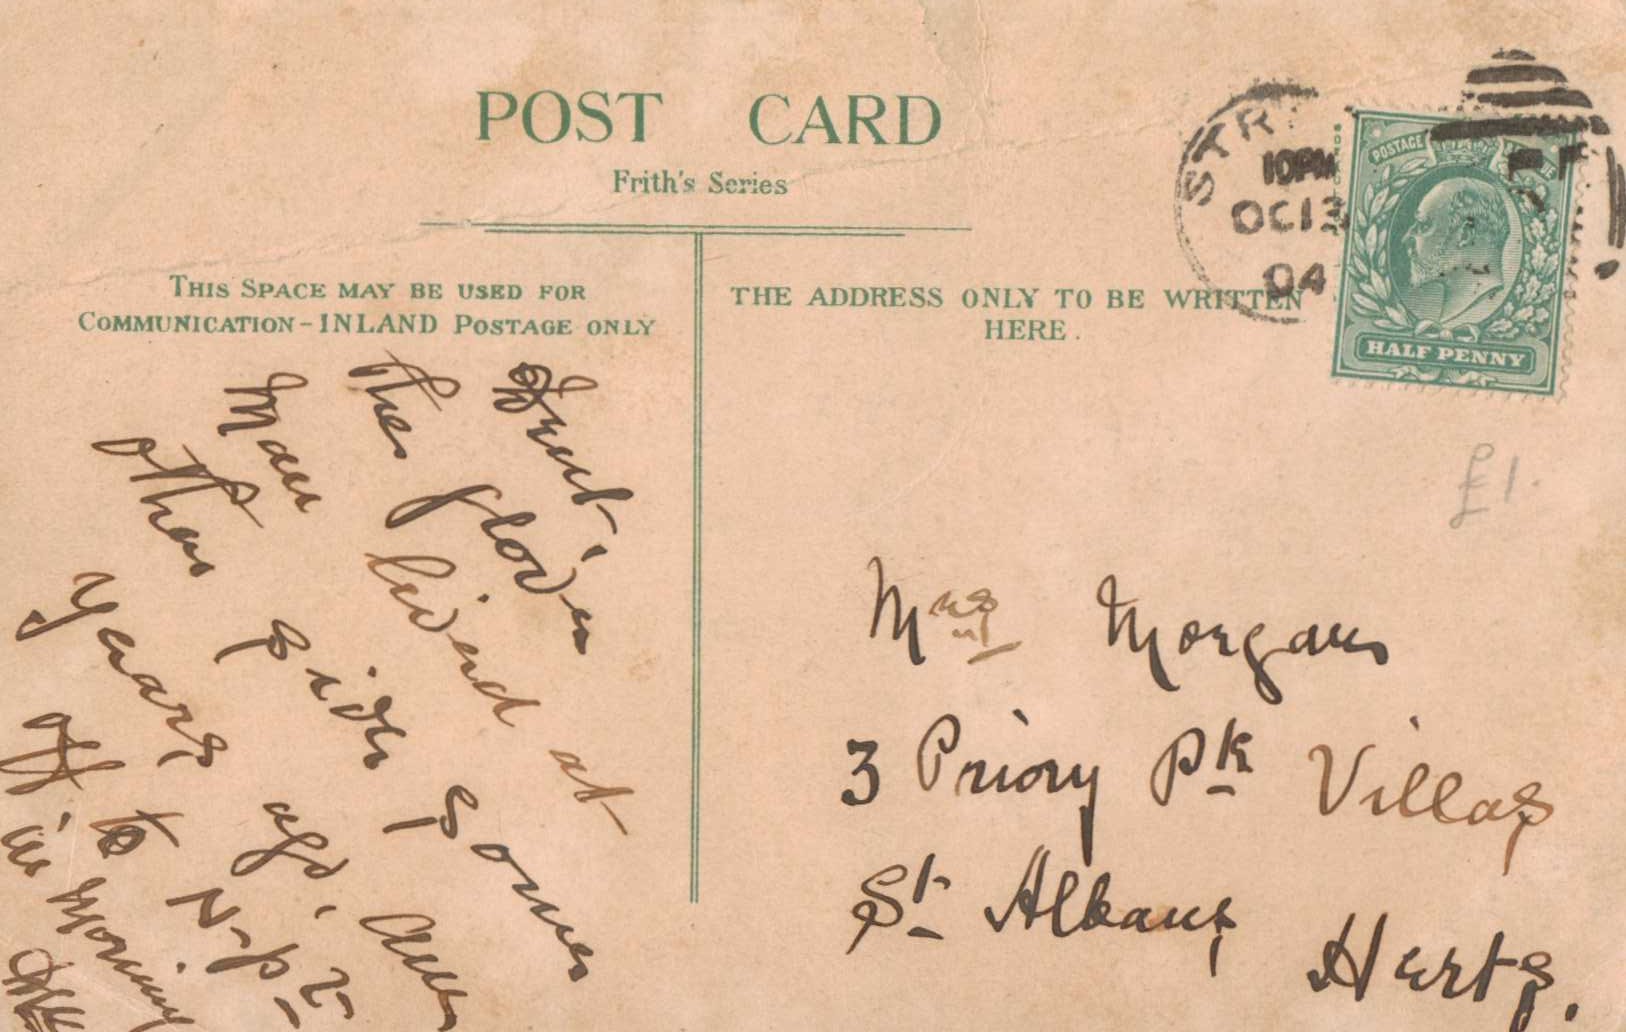 POST CARD
Frith's Series
THIS SPACE MAY BE USED FOR
COMMUNICATION - INLAND POSTAGE ONLY
THE ADDRESS ONLY TO BE WRITTEN
HERE.
STR
10PM
OC 13
04
POSTAGE
HALF PENNY
£1.
The
Man lived at
other side some
years ago. Am
off to N-p-t
in morning
Mrs Morgan
3 Priory Pk Villas
St Albans
Herts.